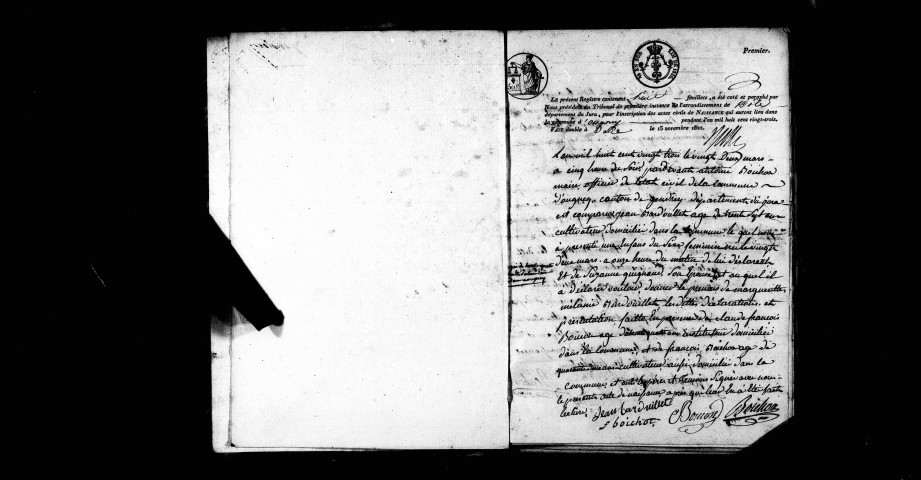 Premier.
Le présent Registre contenant huit feuillets, a été coté et paraphé par
Nous président du Tribunal de première instance de l'arrondissement de Dole
département du Jura, pour l'inscription des actes civils de NAISSANCE qui auront lieu dans
la commune d'Ougney pendant l'an mil huit cent vingt-trois.
Fait double à Dole le 15 novembre 1822.
L'an mil huit cent vingt trois le vingt deux mars
a cinq heure du Soir pardevant antoine Boichot
maire officier de letat civil de la commune
d'ougney canton de gendrey département du jura
est comparu jean Bardoullet age de trente Sept ans
cultivateur domicilié dans la commune le quel nous
à presenté une Enfant du Sexe feminin né le vingt
deux mars a onze heure du matin de lui déclarent
et de Suzanne guignand Son Epouse et au quel il
à déclaré vouloir donner le prenom de marguerite
mélanie Bardouillet les dittes déclarations et
présentation faitte En presence de claude francois
Bouchon age instituteur domicilié
dans la Commune et de francois Boichot age de
quarante ans cultivateur aussi domicilié dans la
commune et ont le père et temoins Signé avec nous
le present acte de naissance apres qu'il leur En à été fait
lecture. Jean bardouillet
f boichot Boichot